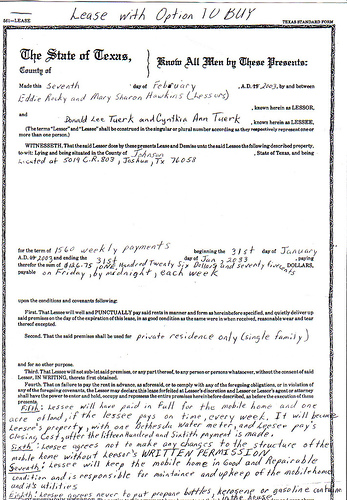 Lease with Option TO BUY
561—LEASE TEXAS STANDARD FORM
The State of Texas,
County of
Know All Men by These Presents:
Made this Seventh day of February , A.D. 19 2003, by and between
Eddie Rocky and Mary Sharon Hawkins (Lessors)
, known herein as LESSOR,
and Donald Lee Tuerk and Cynthia Ann Tuerk , known herein as LESSEE,
(The terms "Lessor" and "Lessee" shall be construed in the singular or plural number according as they respectively represent one or
more than one person.)
WITNESSETH, That the said Lessor does by these presents Lease and Demise unto the said Lessee the following described property,
to wit: Lying and being situated in the County of Johnson , State of Texas, and being
Located at 5019 C.R. 803, Joshua, Tx 76058
for the term of 1560 weekly payments beginning the 31st day of January
A.D. 19 2003 and ending the 31st day of Jan, 2033 , paying
therefor the sum of $126.75 (One Hundred Twenty Six Dollars and seventy five cents DOLLARS,
payable on Friday, by midnight, each week
upon the conditions and covenants following:
First. That Lessee will well and PUNCTUALLY pay said rents in manner and form as hereinbefore specified, and quietly deliver up
said premises on the day of the expiration of this lease, in as good condition as the same were in when received, reasonable wear and tear
thereof excepted.
Second. That the said premises shall be used for private residence only (single family)
and for no other purpose.
Third. That Lessee will not sub-let said premises, or any part thereof, to any person or persons whatsoever, without the consent of said
Lessor, IN WRITING, thereto first obtained.
Fourth. That on failure to pay the rent in advance, as aforesaid, or to comply with any of the foregoing obligations, or in violation of
any of the foregoing covenants, the Lessor may declare this lease forfeited at Lessor's discretion and Lessor or Lessor's agent or attorney
shall have the power to enter and hold, occupy and repossess the entire premises hereinbefore described, as before the execution of these
presents.
Fifth: Lessee will have paid in full for the mobile home and one
acre of land, if the lessee pays on time, every week, It will become
Lessee's property, with one Bethesda water meter, and Lessee pay's
Closing Cost, after the fifteen Hundred and Sixtieth payment is made.
Sixth: Lessee agrees not to make any changes to the structure of the
mobile home without Lessor's WRITTEN PERMISSION
Seventh: Lessee will keep the mobile home in Good and Repairable
condition and is responsible for maintance and upkeep of the mobile home
and it's utilities
Eighth: Lessee agrees never to put propane bottles, kerosene or gasoline
in the house.